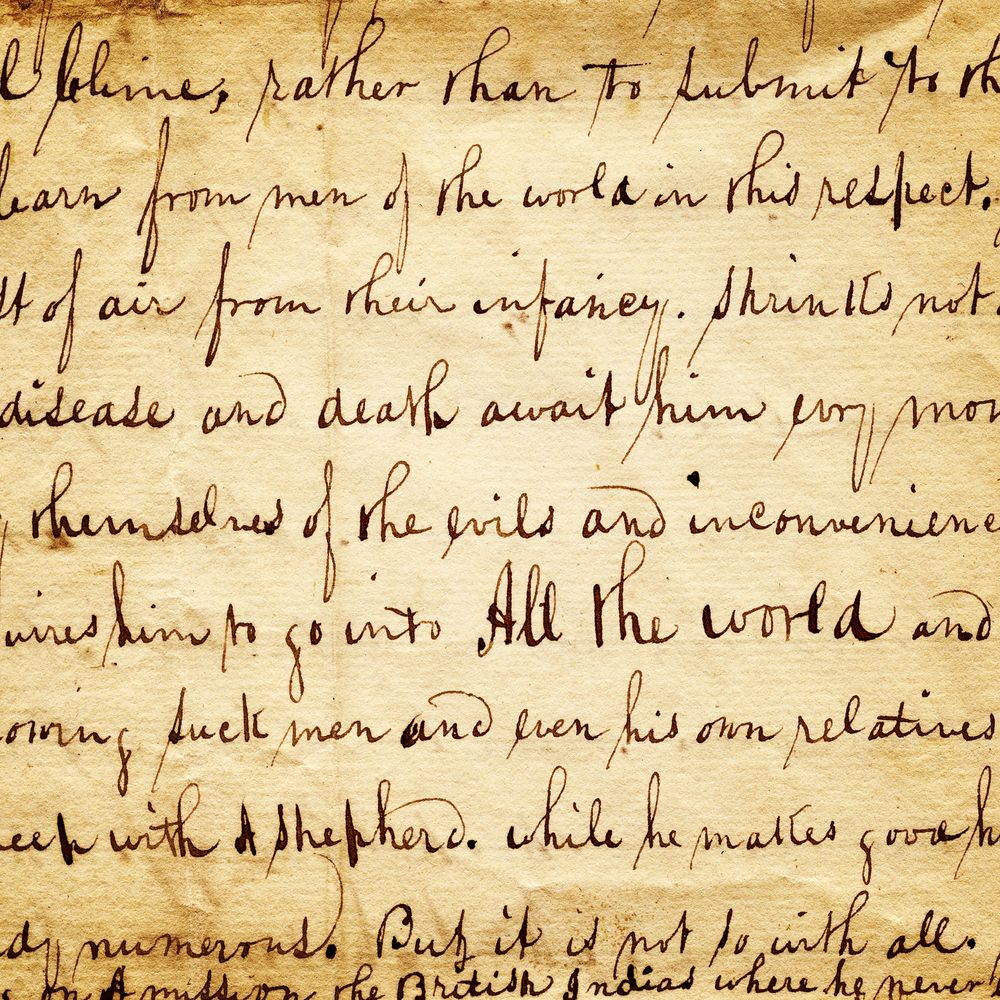 l Clime, rather than to submit to th
learn from men of the world in this respect.
st of air from their infancy. Shrinks not.
disease and death await him evry mom
y themselves of the evils and inconvenienc
uires him to go into All the world and
owing such men and even his own relatives
eep with A Shepherd. while he makes good h
dy numerous. But it is not so with all.
on A mission the British Indias where he never